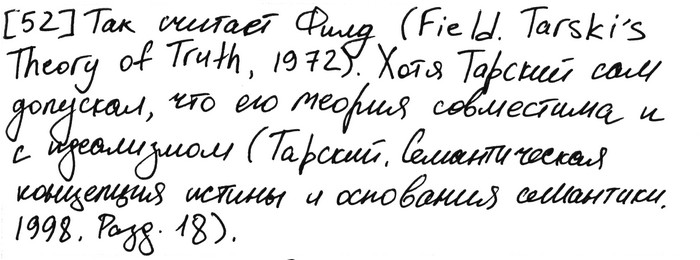 [52] Так считает Филд (Field. Tarski's
Theory of Truth, 1972). Хотя Тарский сам
допускал, что его теория совместима и
с идеализмом (Тарский. Семантическая
концепция истины и основания семантики.
1998. Разд. 18).